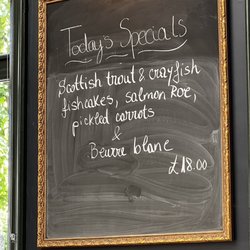 Today's Specials
Scottish trout & crayfish
fishcakes, salmon Roe,
pickled carrots
&
Beurre blanc
£18.00